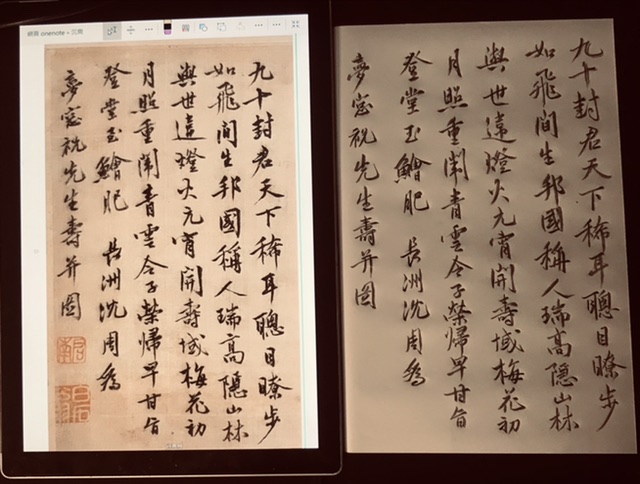 onenote
九十封君天下稀耳聰目瞭步
如飛間生邦國稱人瑞高隱山林
與世違燈火元宵開壽域梅花初
月照重闈青雲令子榮歸早甘旨
登堂玉鱠肥 長洲沈周為
夢窓祝先生壽并圖
九十封君天下稀耳聰目瞭步
如飛間生邦國稱人瑞高隱山林
與世違燈火元宵開壽域梅花初
月照重闈青雲令子榮歸早甘旨
登堂玉鱠肥 長洲沈周為
夢窓祝先生壽并圖